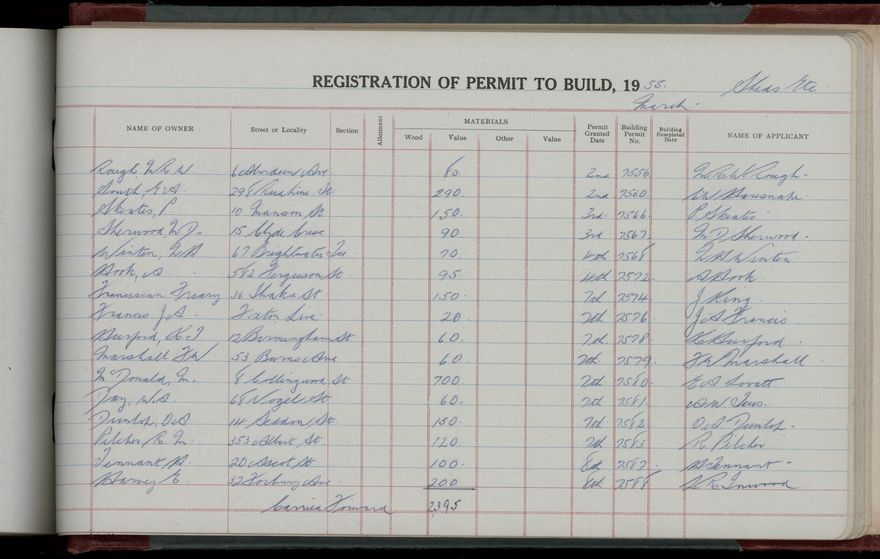 REGISTRATION OF PERMIT TO BUILD, 19 55. Sheds Etc
March.
NAME OF OWNER Street or Locality Section Allotment MATERIALS Wood Value Other Value Permit Granted Date Building Permit No. Building Completed Date NAME OF APPLICANT
Rough, M.R.W 6 Aberdeen Ave. 80. 2nd 7556
South, 298 St 290. 2nd 7560
Skeates, P 10 Manson St 150. 3rd 7566 P Skeates
Sherwood, M.D. 15 Clyde Cresc 90 3rd 7567 M D Sherwood.
Winton, 67 Brightwater Tce 70. 4th 7568 Winton
Book, A 582 Ferguson St 95 4th 7572 A Book
Franciscan Friary 36 Ihaka St 150. 7th 7574 J King
Francis, J.A. 20. 7th 7576 J A Francis
Burford, K.J 12 Birmingham St 60. 7th 7578 K Burford
Marshall F.W 53 Burns Ave 60. 7th 7579. F W Marshall
McDonald, M. 8 Collingwood St 700. 7th 7580 E A Lovett
Day, W.A. 68 Vogel St 60. 7th 7581
Dunlop, O.A 14 Seddon St. 150. 7th 7582 O.A Dunlop.
Pilcher R.M. 353 Albert St 120 7th 7583 R Pilcher
Tennant, 20 Ascot St 100. 8th 7587. Tennant
Harvey E. 32 Torbury Ave. 200 8th 7588 Inwood
Carried Forward 2395